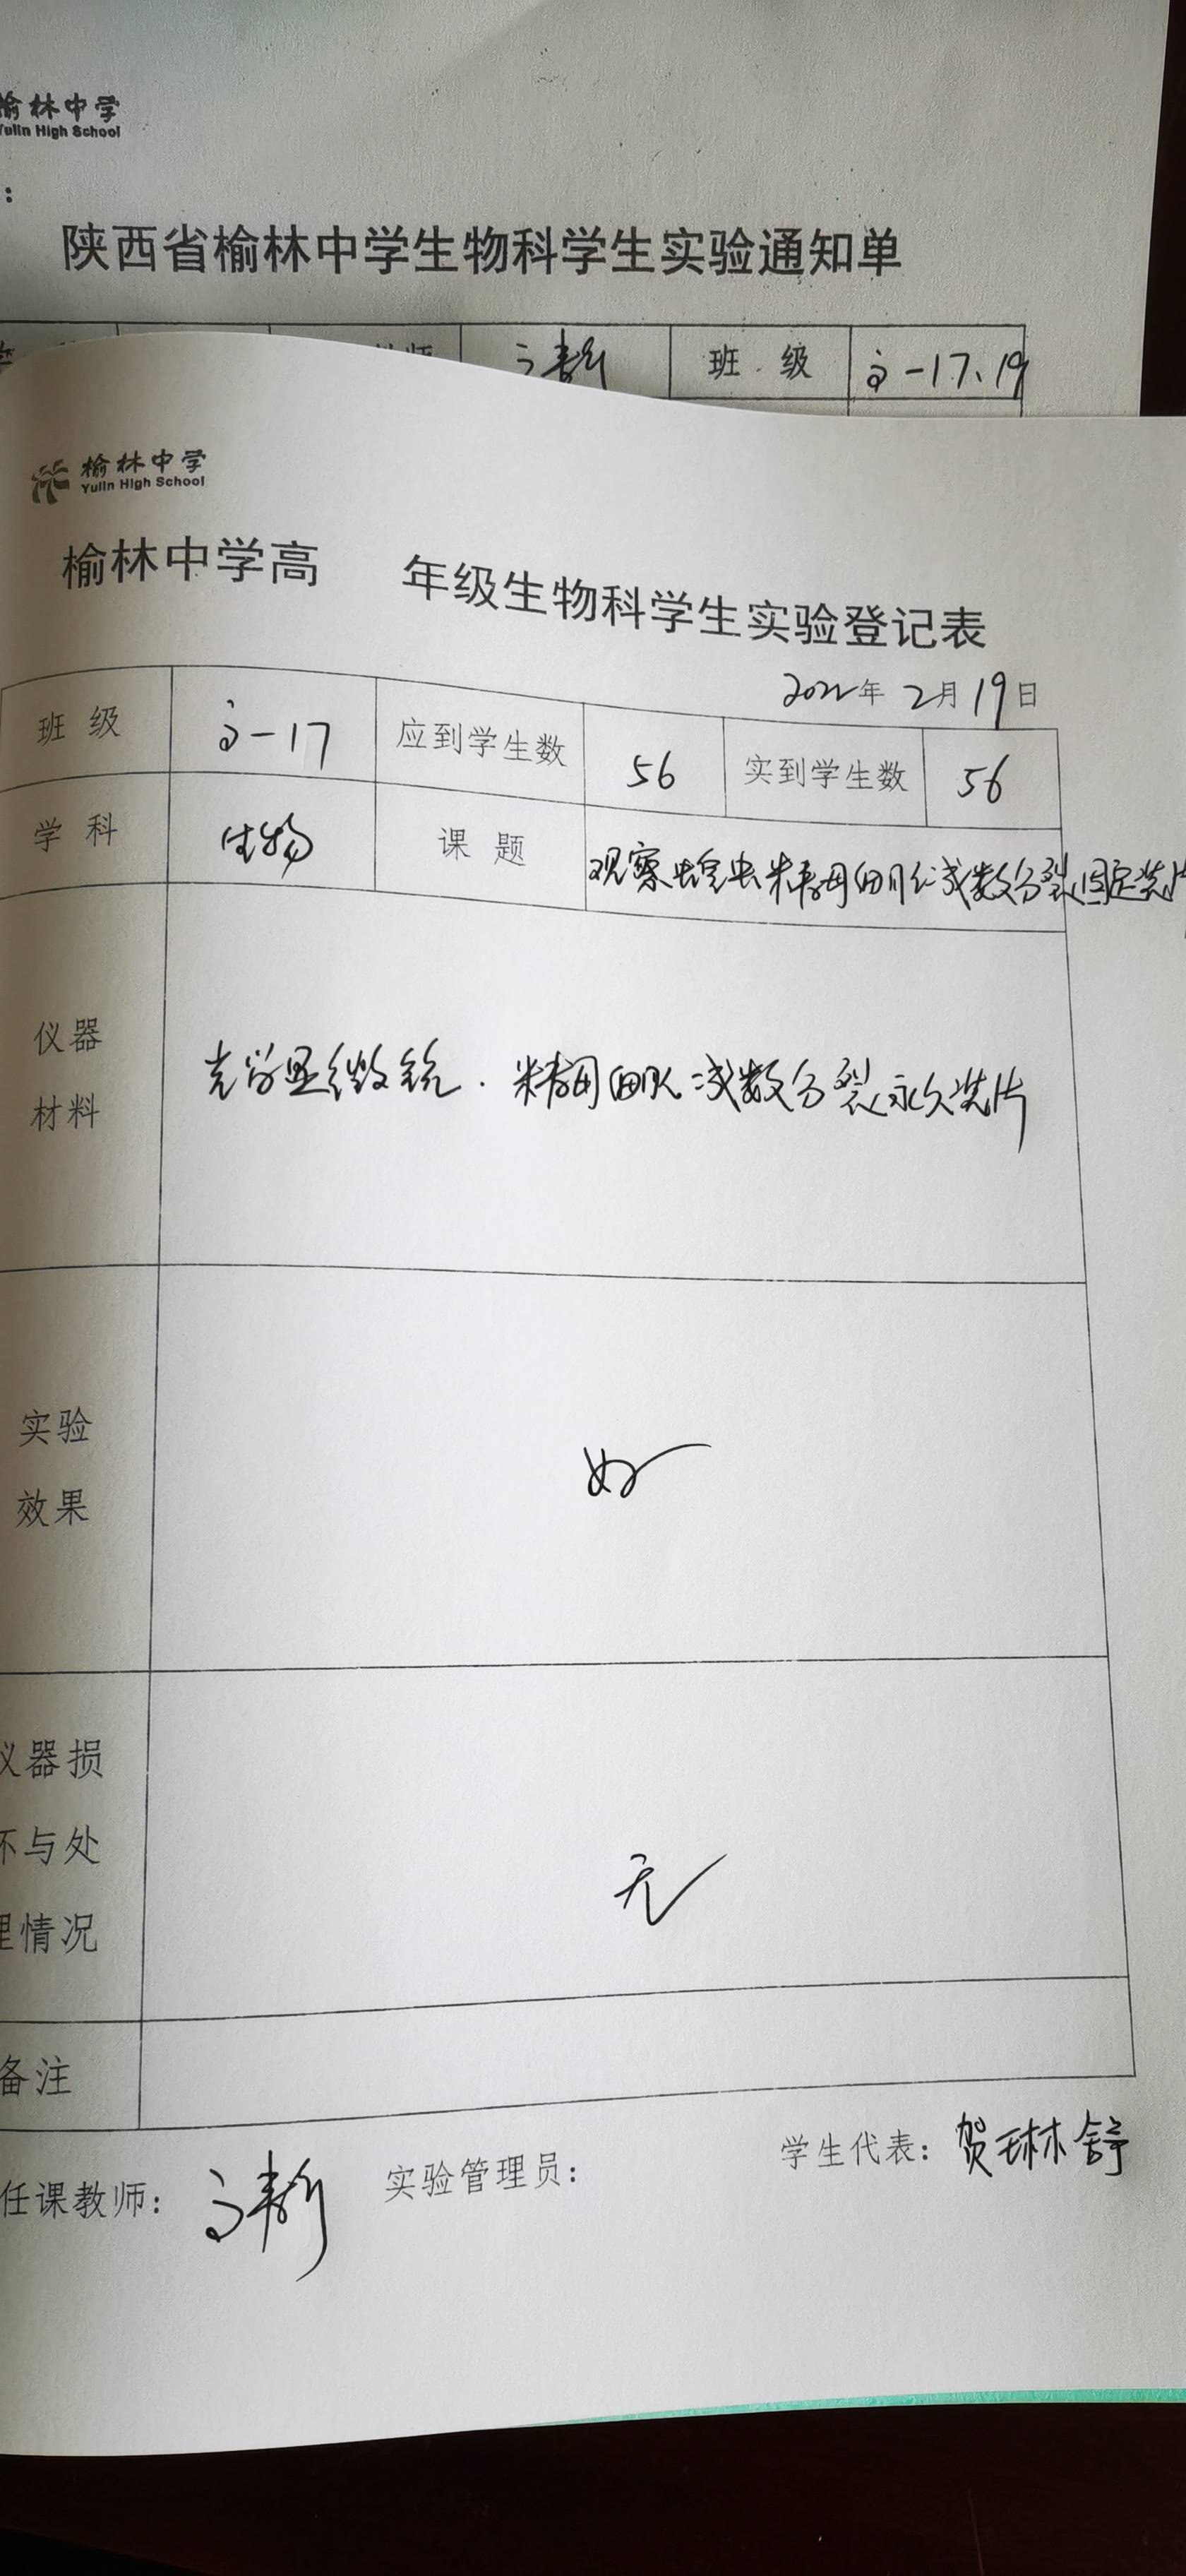 榆林中学
Yulin High School
:
陕西省榆林中学生物科学生实验通知单
教师 班 级 高一17、19
榆林中学
Yulin High School
榆林中学高 年级生物科学生实验登记表
2022年 2月 19日
班 级 高一17 应到学生数 56 实到学生数 56
学 科 生物 课 题 观察蝗虫精母细胞减数分裂固定装片
仪器
材料
光学显微镜. 精母细胞减数分裂永久装片
实验
效果
好
仪器损
坏与处
理情况
无
备注
任课教师: 实验管理员: 学生代表: 贺琳舒